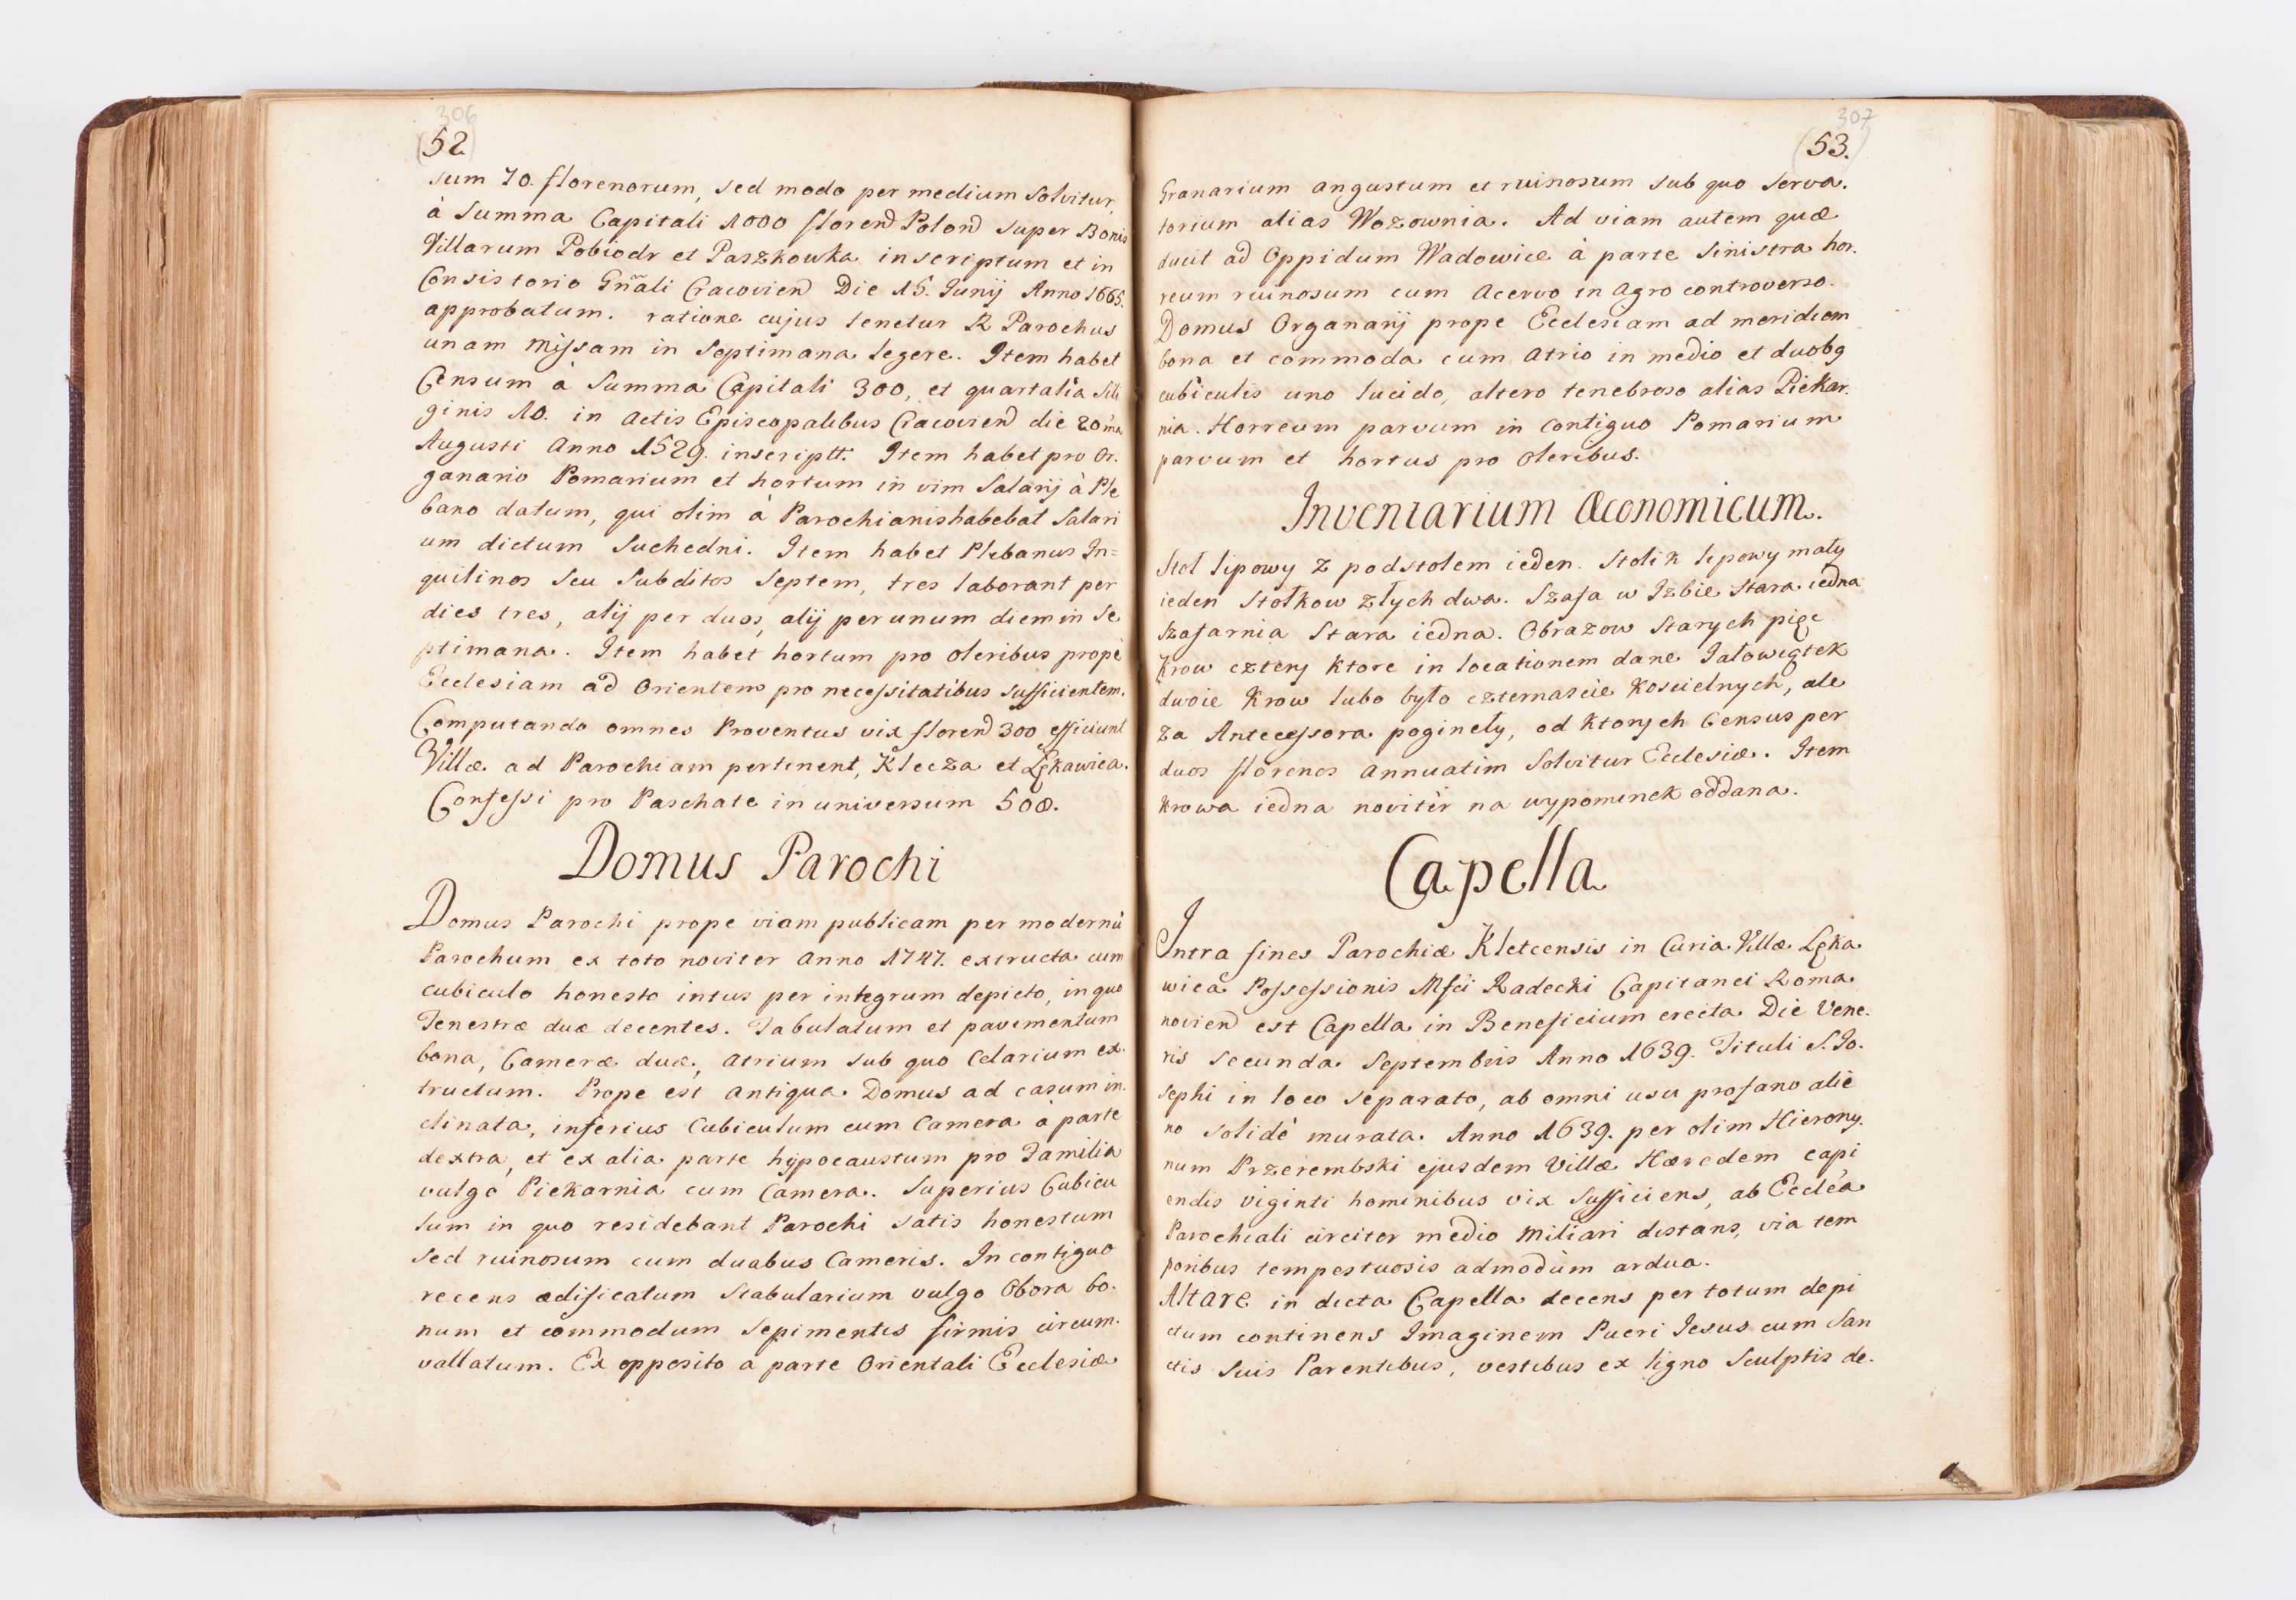 306
(52)
sum 70. florenorum, sed modo per medium solvitur,
à Summa Capitali 1000 floren Polon super Bonis
Villarum Pobiodr et Paszkowka inscriptum et in
Consistorio Gnali Cracovien Die 15. Junij Anno 1665.
approbatum. ratione cujus tenetur R Parochus
unam Missam in Septimana legere. Item habet
Censum à Summa Capitali 300, et quartalia Sili
ginis 10. in Actis Episcopalibus Cracovien die 20ma
Augusti Anno 1529. inscriptt. Item habet pro Or.
ganario Pomarium et hortum in vim Salarij à Ple
bano datum, qui olim à Parochianis habebat Salari
um dictum Suchedni. Item habet Plebanus In=
quilinos seu Subditos Septem, tres laborant per
dies tres, alij per duos, alij per unum diem in Se
ptimana. Item habet hortum pro oleribus propè
Ecclesiam ad Orientem pro necessitatibus sufficientem.
Computando omnes Proventus vix floren 300 efficiunt
Villæ ad Parochiam pertinent, Klecza et Lękawica.
Confessi pro Paschate in universum 500.
Domus Parochi
Domus Parochi prope viam publicam per modernũ
Parochum ex toto noviter Anno 1747. extructa cum
cubiculo honesto intus per integrum depicto, in quo
Fenestræ duæ decentes. Tabulatum et pavimentum
bona, Cameræ duæ, Atrium sub quo Celarium ex.
tructum. Prope est antiqua Domus ad casum in.
clinata, inferius Cubiculum cum Camera à parte
dextra, et ex alia parte hypocaustum pro Familia
vulgo Piekarnia cum Camera. Superius Cubicu
lum in quo residebant Parochi satis honestum
sed ruinosum cum duabus Cameris. In contiguo
recens ædificatum Stabularium vulgo Obora bo.
num et commodum Sepimentis firmis circum.
vallatum. Ex opposito a parte Orientali Ecclesiæ
307
(53.)
Granarium angustum et ruinosum sub quo Serva.
torium alias Wozownia. Ad viam autem quæ
ducit ad Oppidum Wadowice à parte Sinistra hor.
reum ruinosum cum Acervo in agro controverso.
Domus Organarij prope Ecclesiam ad meridiem
bona et commoda cum Atrio in medio et duobg
cubiculis uno lucido, altero tenebroso alias Piekar.
nia. Horreum parvum in contiguo Pomarium
parvum et hortus pro oleribus.
Inventarium Œconomicum.
Stol lipowy z podstolem ieden. Stolik lipowy mały
ieden Stołkow złych dwa. Szafa w Izbie Stara iedna
Szafarnia Stara iedna. Obrazow Starych pięc
Krow cztery Ktore in locationem dane Jałowiątek
dwoie Krow lubo było czternascie Koscielnych, ale
za Antecessora poginely, od Ktorych Census per
duos florenos annuatim Solvitur Ecclesiæ. Item
Krowa iedna novitèr na wypominek oddana.
Capella
Intra fines Parochiæ Kletcensis in Curia Villæ Lęka
wica Possessionis Mfci Radecki Capitanei Roma
novien est Capella in Beneficium erecta Die Vene.
ris secunda Septembris Anno 1639. Tituli S. Jo.
sephi in loco separato, ab omni usu profano alie
no solidè murata Anno 1639. per olim Hierony.
num Przerembski ejusdem Villæ Hæredem capi
endis viginti hominibus vix sufficiens, ab Eccléa
Parochiali circiter medio Miliari distans, via tem
poribus tempestuosis admodùm ardua.
Altare in dicta Capella decens per totum depi
ctum continens Imaginem Pueri Jesus cum San
ctis Suis Parentibus, vestibus ex ligno Sculptis de.